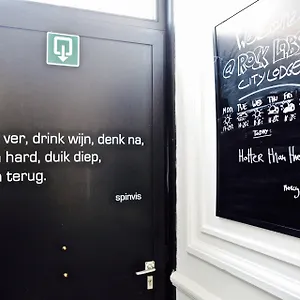 ver, drink wijn, denk na,
hard, duik diep,
terug.
spinvis
@ ROCK LOBS
CITY LODGE
MON TUE WED THU FRI
TODAY:
Hotter than the